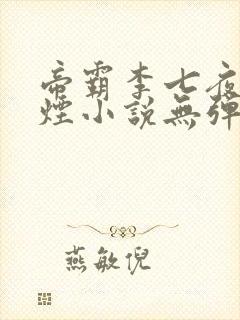 帝霸李七夜
煙小說無彈
燕敏倪